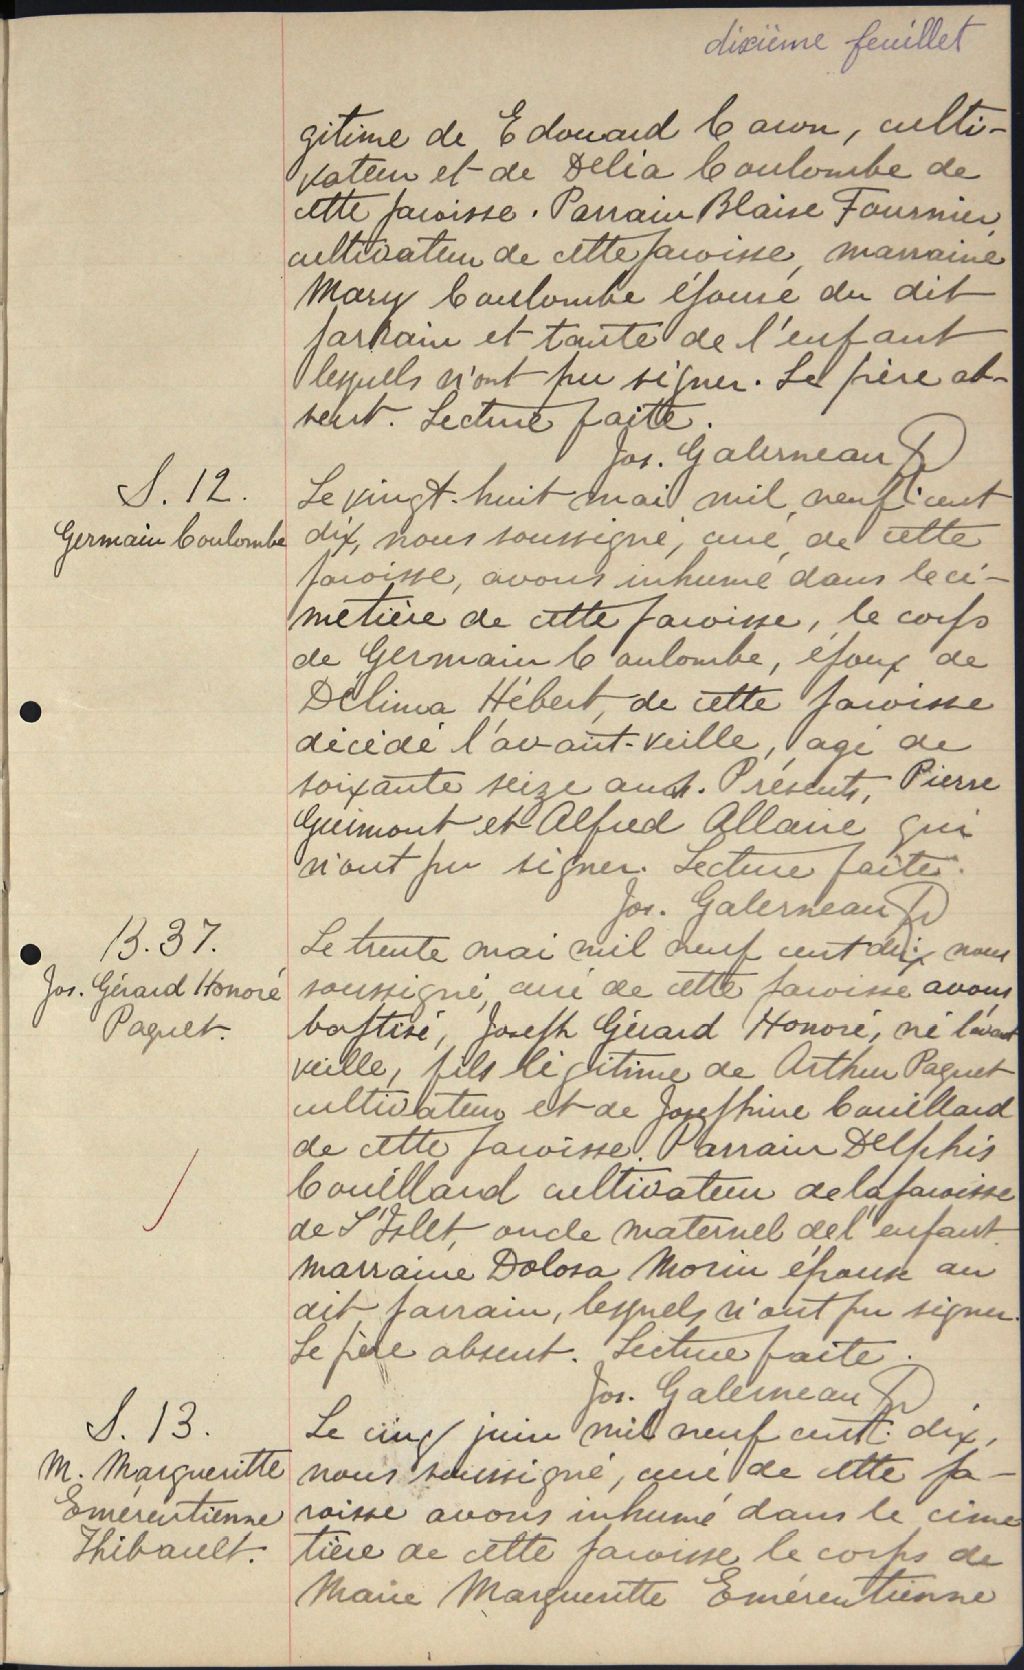 dixième feuillet
gitime de Edouard Caron, culti-
vateur et de Délia Coulombe de
cette paroisse. Parrain Blaise Fournier
cultivateur de cette paroisse, marraine
Mary Coulombe épouse du dit
parrain et tante de l'enfant
lesquels n'ont pu signer. Le père ab-
sent. Lecture faite.
Jos. Galerneau Ptr
S. 12.
Germain Coulombe
Le vingt-huit mai mil neuf cent
dix, nous soussigné, curé de cette
paroisse, avons inhumé dans le ci-
metière de cette paroisse, le corps
de Germain Coulombe, époux de
Délima Hébert, de cette paroisse
décédé l'avant-veille, agé de
soixante seize ans. Présents, Pierre
Guimont et Alfred Allaire qui
n'ont pu signer. Lecture faite.
Jos. Galerneau Ptr
B. 37.
Jos. Gérard Honoré
Paquet.
Le trente mai mil neuf cent dix nous
soussigné, curé de cette paroisse avons
baptisé, Joseph Gérard Honoré, né l'avant
veille, fils légitime de Arthur Paquet
cultivateur et de Josephine Couillard
de cette paroisse. Parrain Delphis
Couillard cultivateur de la paroisse
de L'Islet, oncle maternel de l'enfant
marraine Dolosa Morin épouse au
dit parrain, lesquels n'ont pu signer.
Le père absent. Lecture faite.
Jos. Galerneau Ptr
S. 13.
M. Margueritte
Emérentienne
Thibault.
Le cinq juin mil neuf cent dix,
nous soussigné, curé de cette pa-
roisse avons inhumé dans le cime
tière de cette paroisse le corps de
Marie Margueritte Emérentienne